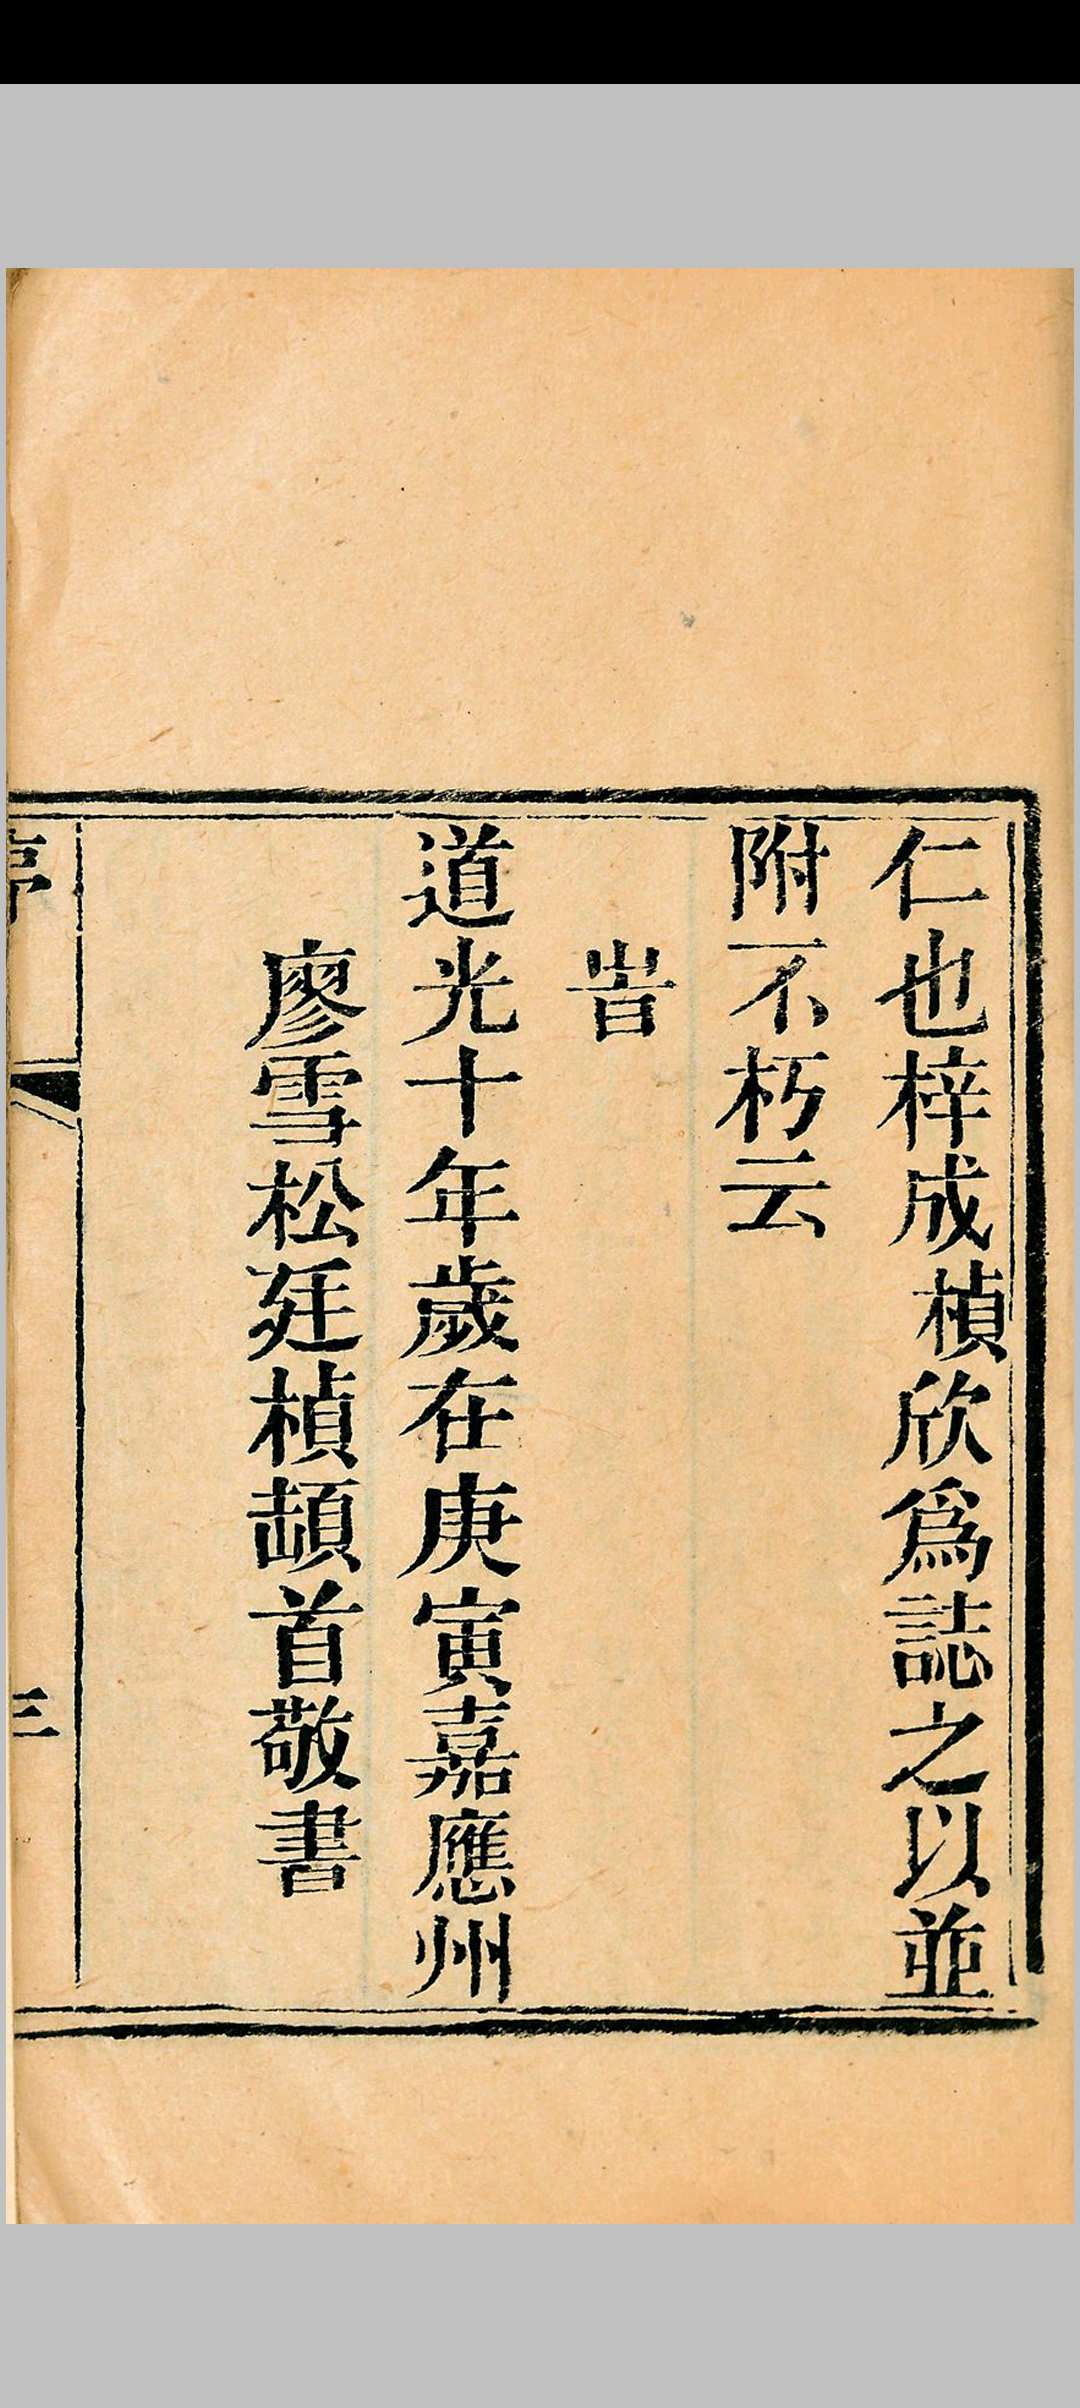 仁也梓成楨欣爲誌之以並
附不朽云
旹
道光十年歲在庚寅嘉應州
廖雪松廷楨頓首敬書
序
三